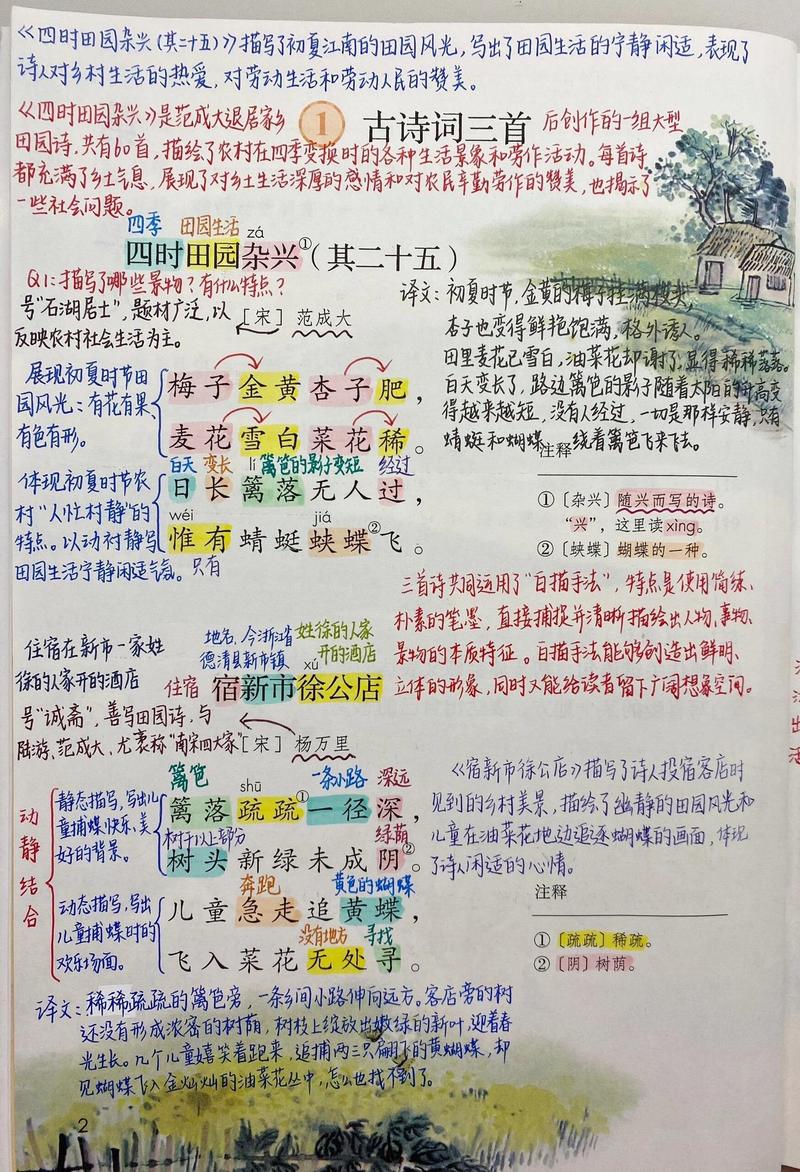 《四时田园杂兴(其二十五)》描写了初夏江南的田园风光,写出了田园生活的宁静闲适,表现了
诗人对乡村生活的热爱,对劳动生活和劳动人民的赞美。
《四时田园杂兴》是范成大退居家乡
1 古诗词三首
后创作的一组大型
田园诗,共有60首,描绘了农村在四季变换时的各种生活景象和劳作活动。每首诗
都充满了乡土气息,展现了对乡土生活深厚的感情和对农民辛勤劳作的赞美,也揭示了
一些社会问题。
四季 田园生活 zá
四时田园杂兴①(其二十五)
Q1:描写了哪些景物?有什么特点?
号"石湖居士",题材广泛,以
反映农村社会生活为主。
[宋] 范成大
译文:初夏时节,金黄的梅子挂满枝头,
杏子也变得鲜艳饱满,格外诱人。
田里麦花已雪白,油菜花却谢了,显得稀稀落落。
白天变长了,路边篱笆的影子随着太阳的升高变
得越来越短,没有人经过,一切是那样安静,只有
蜻蜓和蝴蝶 绕着篱笆飞来飞去。
展现初夏时节田
园风光:有花有果、
有色有形。
梅子金黄杏子肥,
麦花雪白菜花稀。
白天 变长 lí 篱笆的影子变短 经过
日长篱落无人过,
wéi jiá
惟有蜻蜓蛱蝶②飞。
只有
体现初夏时节农
村"人忙村静"的
特点。以动衬静写
田园生活宁静闲适气氛。
注释
①〔杂兴〕随兴而写的诗。
"兴",这里读xìng。
②〔蛱蝶〕蝴蝶的一种。
三首诗共同运用了"白描手法",特点是使用简练、
朴素的笔墨,直接捕捉并清晰描绘出人物、事物、
景物的本质特征。白描手法能够创造出鲜明、
立体的形象,同时又能给读者留下广阔想象空间。
住宿在新市一家姓
徐的人家开的酒店
地名,今浙江省
德清县新市镇
姓徐的人家
开的酒店
xú
住宿
宿新市徐公店
号"诚斋",善写田园诗,与
陆游、范成大、尤袤称"南宋四大家"
[宋] 杨万里
篱笆 shū 一条小路 深远
篱落疏疏①一径深,
树干以上部分 绿荫
树头新绿未成阴②。
奔跑 黄色的蝴蝶
儿童急走追黄蝶,
没有地方 寻找
飞入菜花无处寻。
动静结合
静态描写,写出儿
童捕蝶快乐、美
好的背景。
动态描写,写出
儿童捕蝶时的
欢乐场面。
《宿新市徐公店》描写了诗人投宿客店时
见到的乡村美景,描绘了幽静的田园风光和
儿童在油菜花地边追逐蝴蝶的画面,体现
了诗人闲适的心情。
注释
①〔疏疏〕稀疏。
②〔阴〕树荫。
译文:稀稀疏疏的篱笆旁,一条乡间小路伸向远方。客店旁的树
还没有形成浓密的树荫,树枝上绽放出嫩绿的新叶,迎着春
光生长。几个儿童嬉笑着跑来,追捕两三只翩飞的黄蝴蝶,却
见蝴蝶飞入金灿灿的油菜花丛中,怎么也找不到了。
2